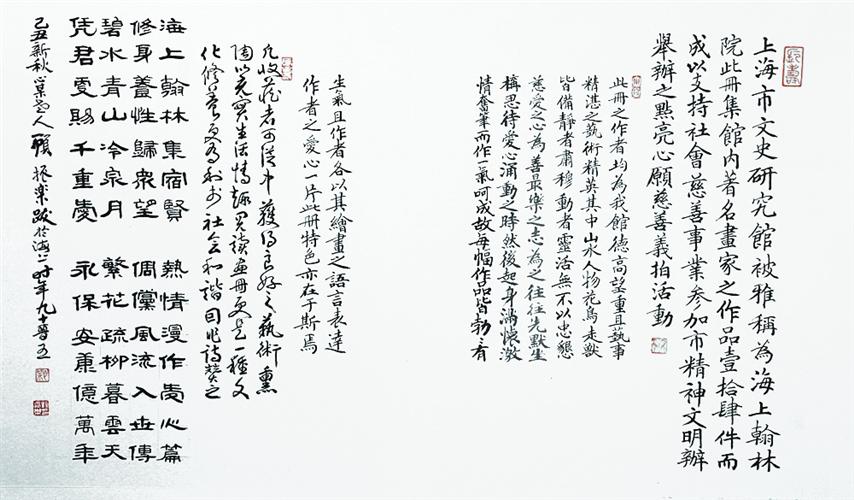 上海市文史研究館被雅稱為海上翰林
院此冊集館內著名畫家之作品壹拾肆件而
成以支持社會慈善事業参加市精神文明辦
舉辦之點亮心願慈善義拍活動
此冊之作者均為我館德高望重且藝事
精湛之藝術精英其中山水人物花鳥走獸
皆備靜者肅穆動者靈活無不以忠懇
慈愛之心為善最樂之志為之往往先默坐
構思待愛心涌動之時然後起身滿懷激
情奮筆而作一氣呵成故每幅作品皆勃々有
生氣且作者各以其繪畫之語言表達
作者之愛心一片此冊特色亦在于斯焉
凡收藏者可從中獲得良好之藝術熏
陶以充實生活情趣閱讀畫冊更是一種文
化修養更為利於社會和諧因此詩贊之
海上翰林集宿賢 熱情漫作愛心篇
修身養性歸衆望 倜儻風流入世傳
碧水青山冷泉月 繁花疏柳暮雲天
凭君更賜千重愛 永保安康億萬年
己丑新秋 老人顧振樂跋於海上時年九十有五